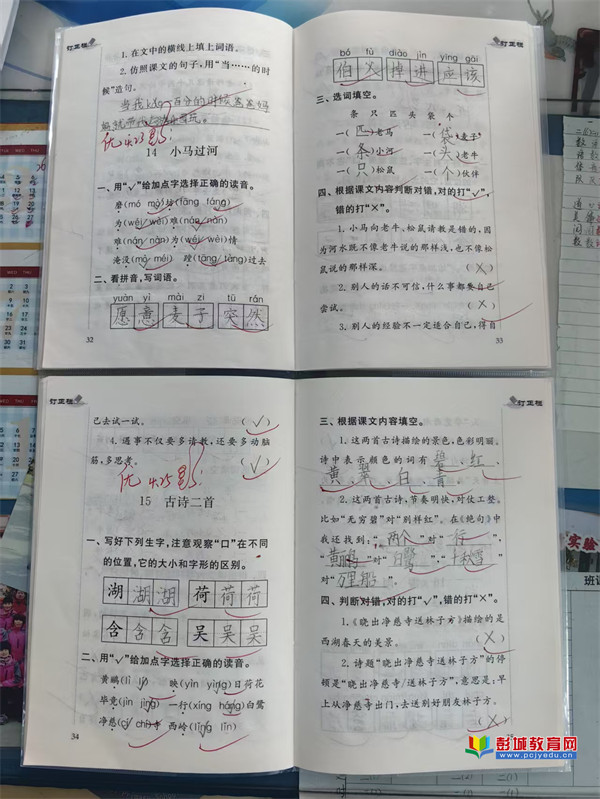 订正栏
1. 在文中的横线上填上词语。
2. 仿照课文的句子,用“当……的时
候”造句。
优
14 小马过河
一、用“✓”给加点字选择正确的读音。
磨(mó mò)坊(fāng fáng)
为(wéi/wèi)难(nán/nàn)
难(nán/nàn)为(wéi/wèi)情
淹没(mò méi) 蹚(tāng/táng)过去
二、看拼音,写词语。
yuàn yì mài zi tū rán
愿意 麦子 突然
32
订正栏
bó fù diào jìn yīng gāi
伯父 掉进 应该
三、选词填空。
条 只 匹 头 袋 个
一(匹)老马 一(袋)麦子
一(条)小河 一(头)老牛
一(只)松鼠 一(个)伙伴
四、根据课文内容判断对错,对的打“✓”,
错的打“×”。
1. 小马向老牛、松鼠请教是错的,因
为河水既不像老牛说的那样浅,也不像松
鼠说的那样深。 (×)
2. 别人的话不可信,什么事都要自己
尝试。 (×)
3. 别人的经验不一定适合自己,得自
33
订正栏
己去试一试。 (✓)
4. 遇事不仅要多请教,还要多动脑
筋,多思考。 (✓)
优
15 古诗二首
一、写好下列生字,注意观察“口”在不同
的位置,它的大小和字形的区别。
湖湖湖 荷荷荷
含含含 吴吴吴
二、用“✓”给加点字选择正确的读音。
黄鹂(lí lì) 映(yìn yìng)日荷花
毕竟(jìn jìng) 一行(xíng háng)白鹭
净慈(cí chí)寺 西岭(lǐng lǐn)
34
订正栏
三、根据课文内容填空。
1. 这两首古诗描绘的景色,色彩明丽。
诗中表示颜色的词有 碧、红、
黄、翠、白、青。
2. 这两首古诗,节奏明快,对仗工整。
比如“无穷碧”对“别样红”。在《绝句》中
我还找到:“两个”对“一行”,
“黄鹂”对“白鹭”,“千秋雪”
对“万里船”。
四、判断对错,对的打“✓”,错的打“×”。
1.《晓出净慈寺送林子方》描绘的是
西湖春天的美景。 (×)
2. 诗题“晓出净慈寺送林子方”的停
顿是“晓出净慈寺/送林子方”,意思是:早
上从净慈寺出门,去送别好朋友林子方。
(×)
彭城教育网
www.pcjyedu.cn